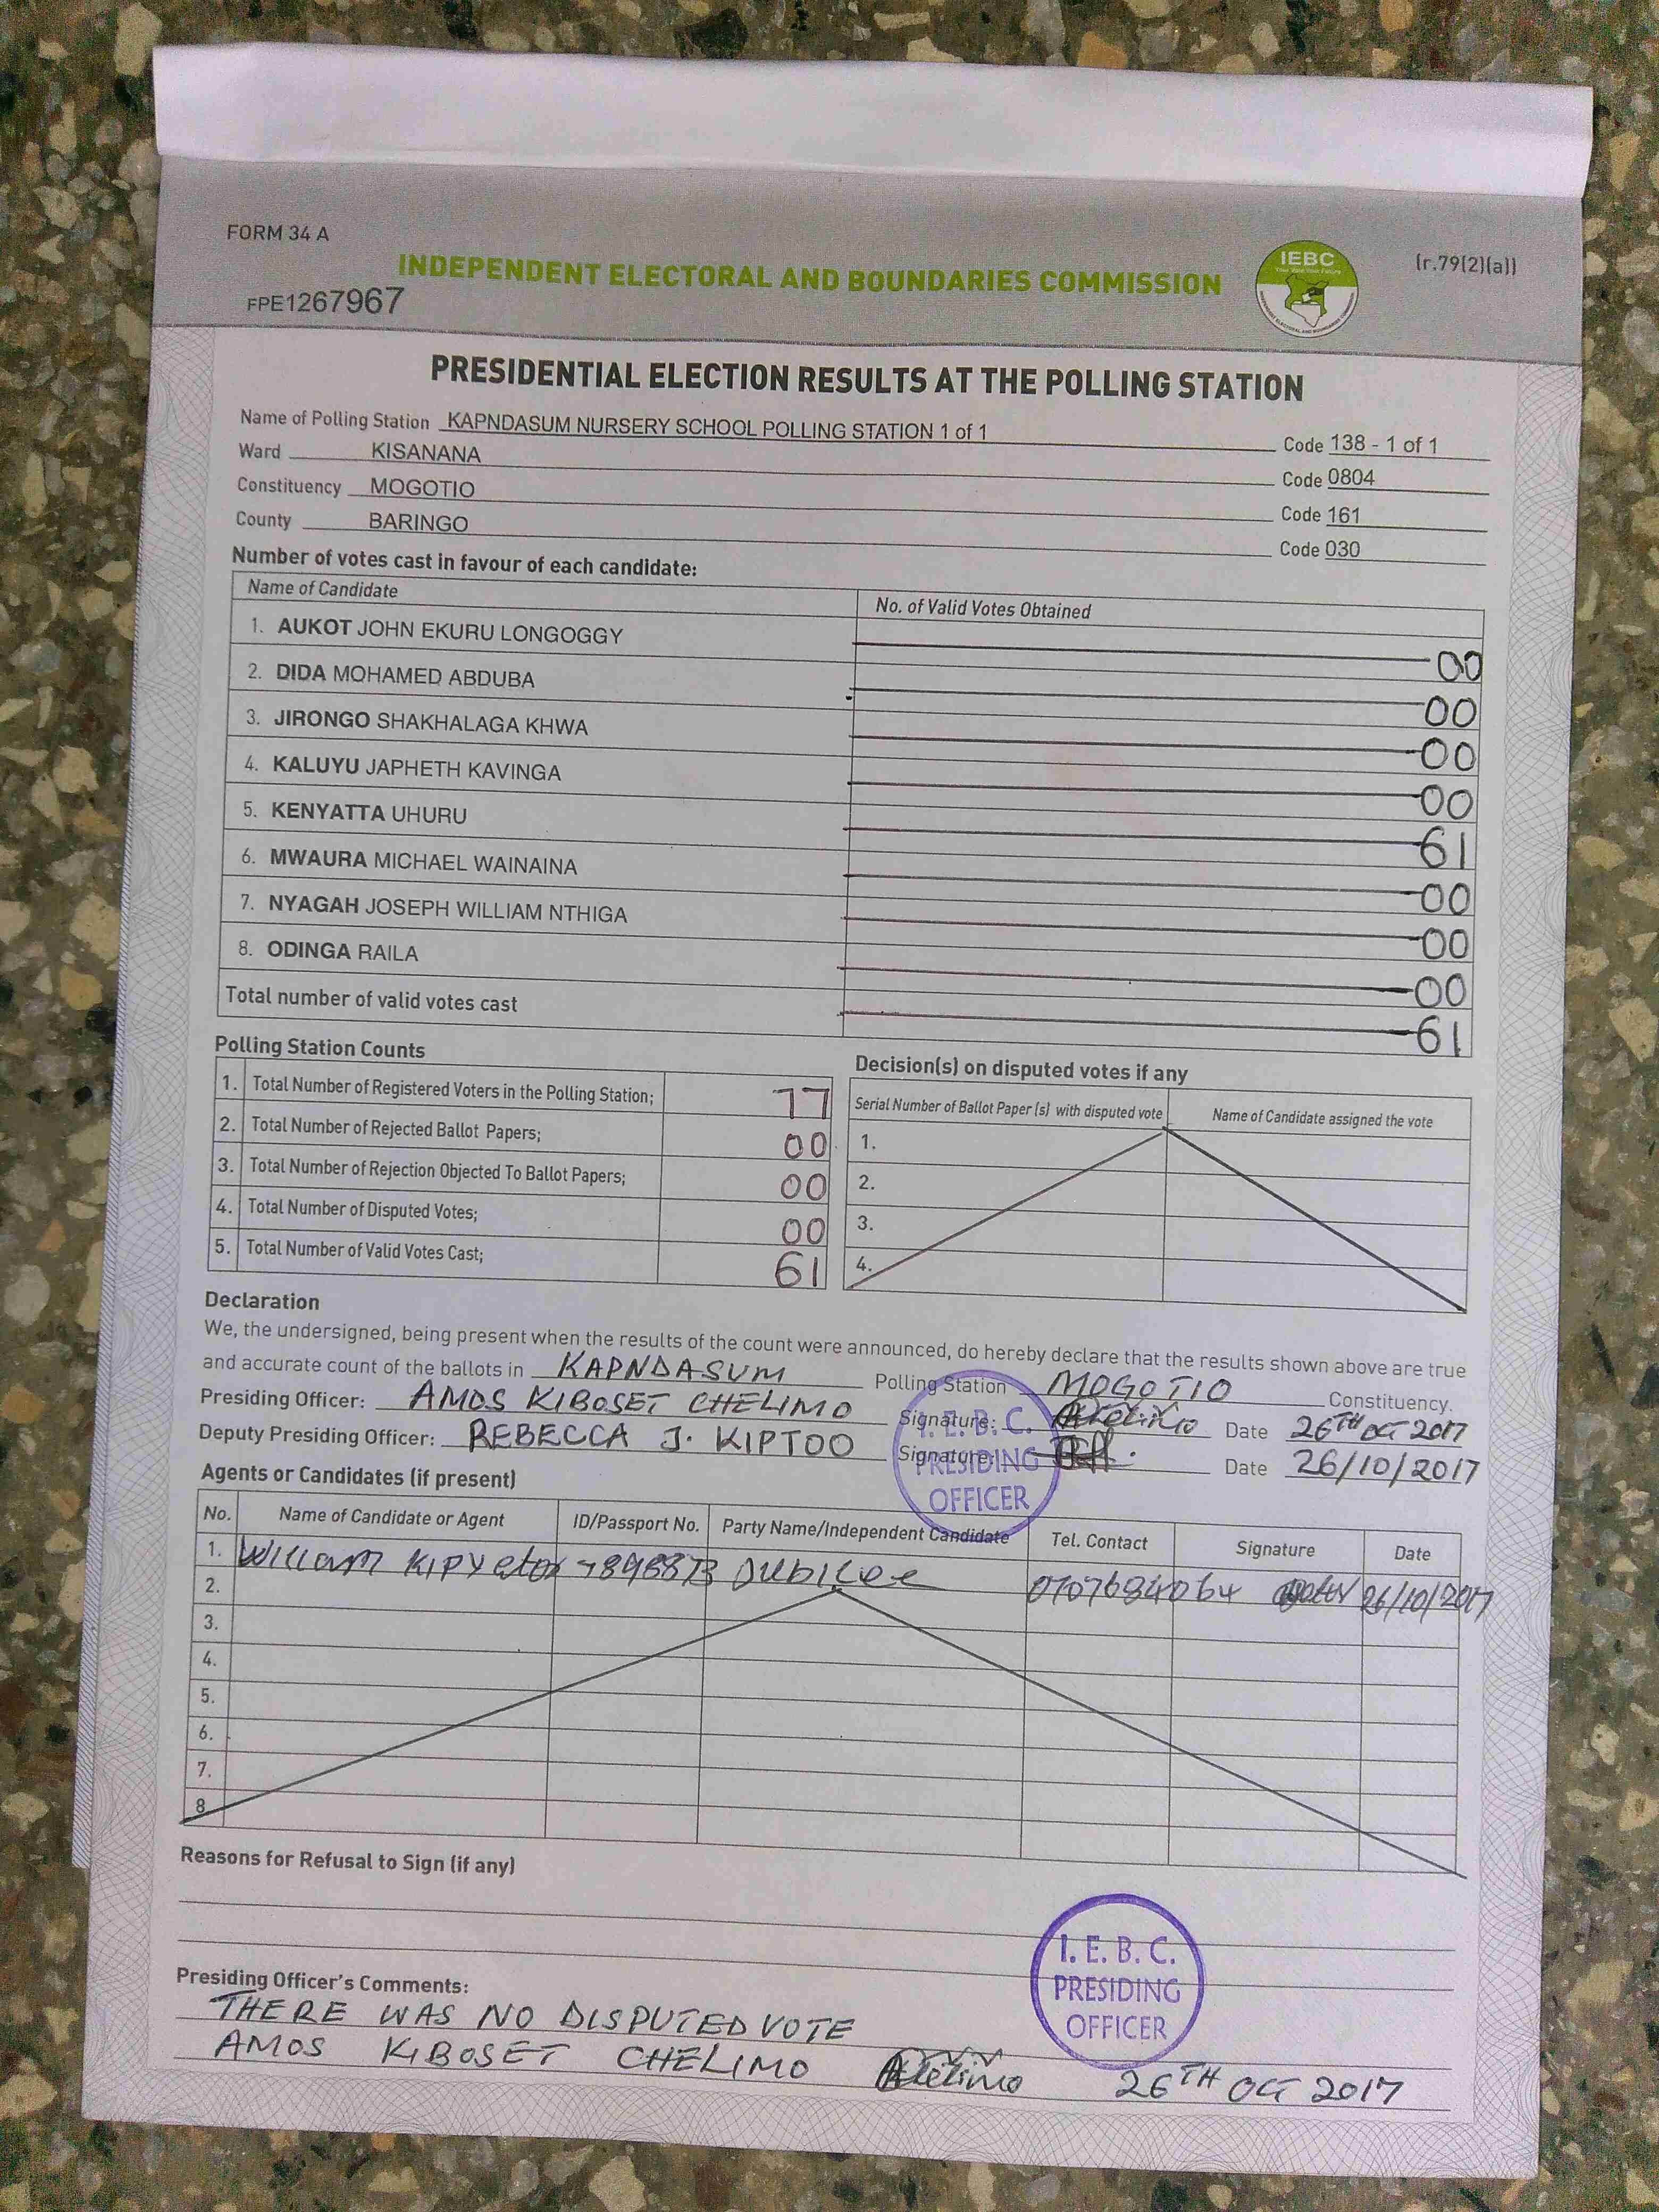 FORM 34 A
(r.79(2)(a))
INDEPENDENT ELECTORAL AND BOUNDARIES COMMISSION
IEBC
Your Vote Your Future
FPE1267967
PRESIDENTIAL ELECTION RESULTS AT THE POLLING STATION
Name of Polling Station KAPNDASUM NURSERY SCHOOL POLLING STATION 1 of 1 Code 138 - 1 of 1
Ward KISANANA Code 0804
Constituency MOGOTIO Code 161
County BARINGO Code 030
Number of votes cast in favour of each candidate:
Name of Candidate No. of Valid Votes Obtained
1. AUKOT JOHN EKURU LONGOGGY 00
2. DIDA MOHAMED ABDUBA 00
3. JIRONGO SHAKHALAGA KHWA 00
4. KALUYU JAPHETH KAVINGA 00
5. KENYATTA UHURU 61
6. MWAURA MICHAEL WAINAINA 00
7. NYAGAH JOSEPH WILLIAM NTHIGA 00
8. ODINGA RAILA 00
Total number of valid votes cast 61
Polling Station Counts
1. Total Number of Registered Voters in the Polling Station; 77
2. Total Number of Rejected Ballot Papers; 00
3. Total Number of Rejection Objected To Ballot Papers; 00
4. Total Number of Disputed Votes; 00
5. Total Number of Valid Votes Cast; 61
Decision(s) on disputed votes if any
Serial Number of Ballot Paper (s) with disputed vote Name of Candidate assigned the vote
1.
2.
3.
4.
Declaration
We, the undersigned, being present when the results of the count were announced, do hereby declare that the results shown above are true
and accurate count of the ballots in KAPNDASUM Polling Station MOGOTIO Constituency.
Presiding Officer: AMOS KIBOSET CHELIMO Signature: Date 26TH OCT 2017
Deputy Presiding Officer: REBECCA J. KIPTOO Signature: Date 26/10/2017
I. E. B. C.
PRESIDING
OFFICER
Agents or Candidates (if present)
No. Name of Candidate or Agent ID/Passport No. Party Name/Independent Candidate Tel. Contact Signature Date
1. William KIPYator Jubilee 0707684064 26/10/2017
2.
3.
4.
5.
6.
7.
8
Reasons for Refusal to Sign (if any)
I. E. B. C.
PRESIDING
OFFICER
Presiding Officer's Comments:
THERE WAS NO DISPUTED VOTE
AMOS KIBOSET CHELIMO 26TH OCT 2017